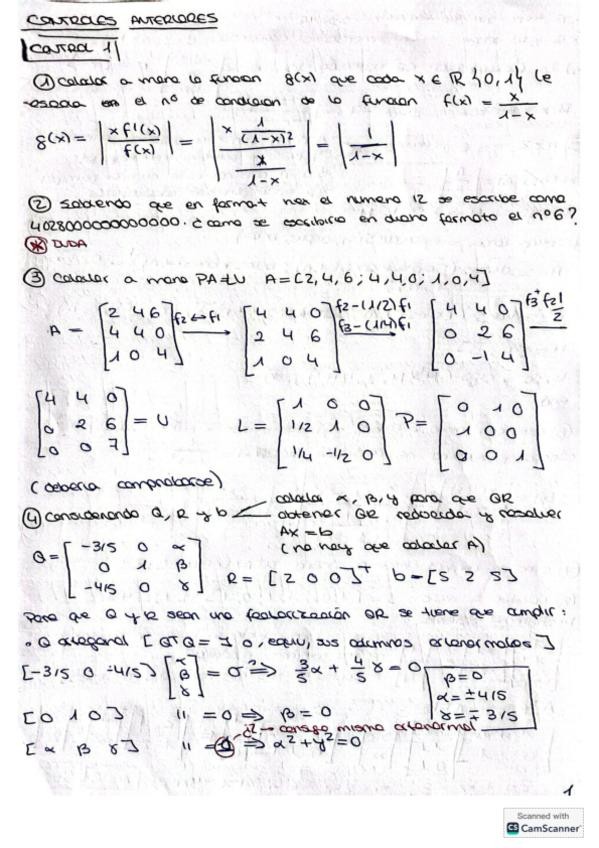 CONTROLES ANTERIORES
Control 1
① Calcular a mano la función g(x) que cada x ∈ ℝ \{0,1} le
asocia en el nº de condición de la función f(x) = x/(1-x)
g(x) = |x f'(x) / f(x)| = |x 1/(1-x)² / (x/(1-x))| = |1/(1-x)|
② Sabiendo que en format hex el numero 12 se escribe como
4028000000000000. ¿como se escribiría en dicho formato el nº 6?
* DUDA
③ Calcular a mano PA=LU A=[2,4,6; 4,4,0; 1,0,4]
A = [2 4 6; 4 4 0; 1 0 4] f2↔f1 → [4 4 0; 2 4 6; 1 0 4] f2-(1/2)f1 f3-(1/4)f1 → [4 4 0; 0 2 6; 0 -1 4] f3+f2 1/2
[4 4 0; 0 2 6; 0 0 7] = U L = [1 0 0; 1/2 1 0; 1/4 -1/2 0] P = [0 1 0; 1 0 0; 0 0 1]
(debería comprobarse)
④ Considerando Q, R y b
calcular α, β, γ para que QR
obtener QR reducida y resolver
Ax=b
(no hay que calcular A)
Q = [-3/5 0 α; 0 1 β; -4/5 0 γ] R = [2 0 0]ᵀ b = [5 2 5]
Para que Q y R sean una factorización QR se tiene que cumplir:
· Q ortogonal [QTQ = I o, equiv, sus columnas ortonormales]
[-3/5 0 -4/5] [α β γ] = 0 ⇒ 3/5 α + 4/5 γ = 0
β=0
α=±4/5
γ=∓3/5
[0 1 0] " = 0 ⇒ β = 0
1 consigo mismo ortonormal
[α β γ] " = 0 ⇒ α² + γ² = 0
1
Scanned with
CS CamScanner